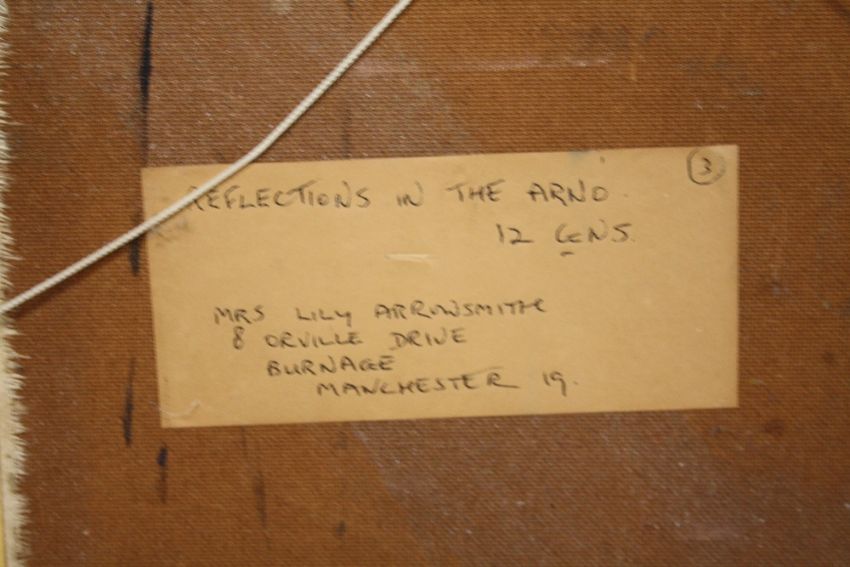 3
REFLECTIONS IN THE ARNO.
12 GNS.
MRS LILY ARROWSMITH
8 ORVILLE DRIVE
BURNAGE
MANCHESTER 19.